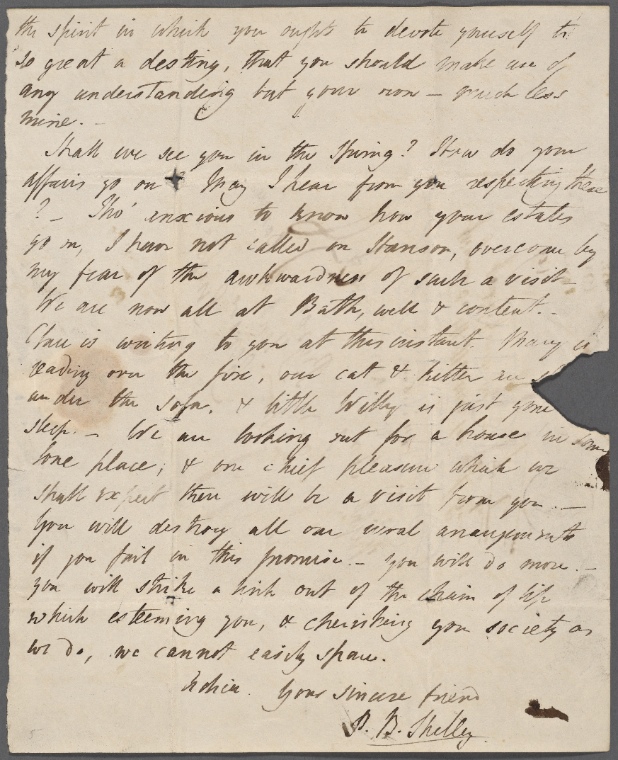 the spirit in which you ought to devote yourself to
so great a destiny, that you should make use of
any understanding but your own – much less
mine. –
Shall we see you in the Spring? How do your
affairs go on + May I hear from you respecting them
? – Tho' anxious to know how your estates
go on, I have not called on Hanson, overcome by
my fear of the awkwardness of such a visit –
We are now all at Bath, well & content. –
Clare is writing to you at this instant Mary is
reading over the fire, our cat & kitten are
under the sofa. & little Willy is just gone
sleep. – We are looking out for a house in some
lone place; & one chief pleasure which we
shall expect then will be a visit from you. –
You will destroy all our rural arrangements
if you fail in this promise – You will do more. –
You will strike a link out of the chain of life
which esteeming you, & cherishing your society as
we do, we cannot easily spare.
Adieu. Your sincere friend
P. B. Shelley